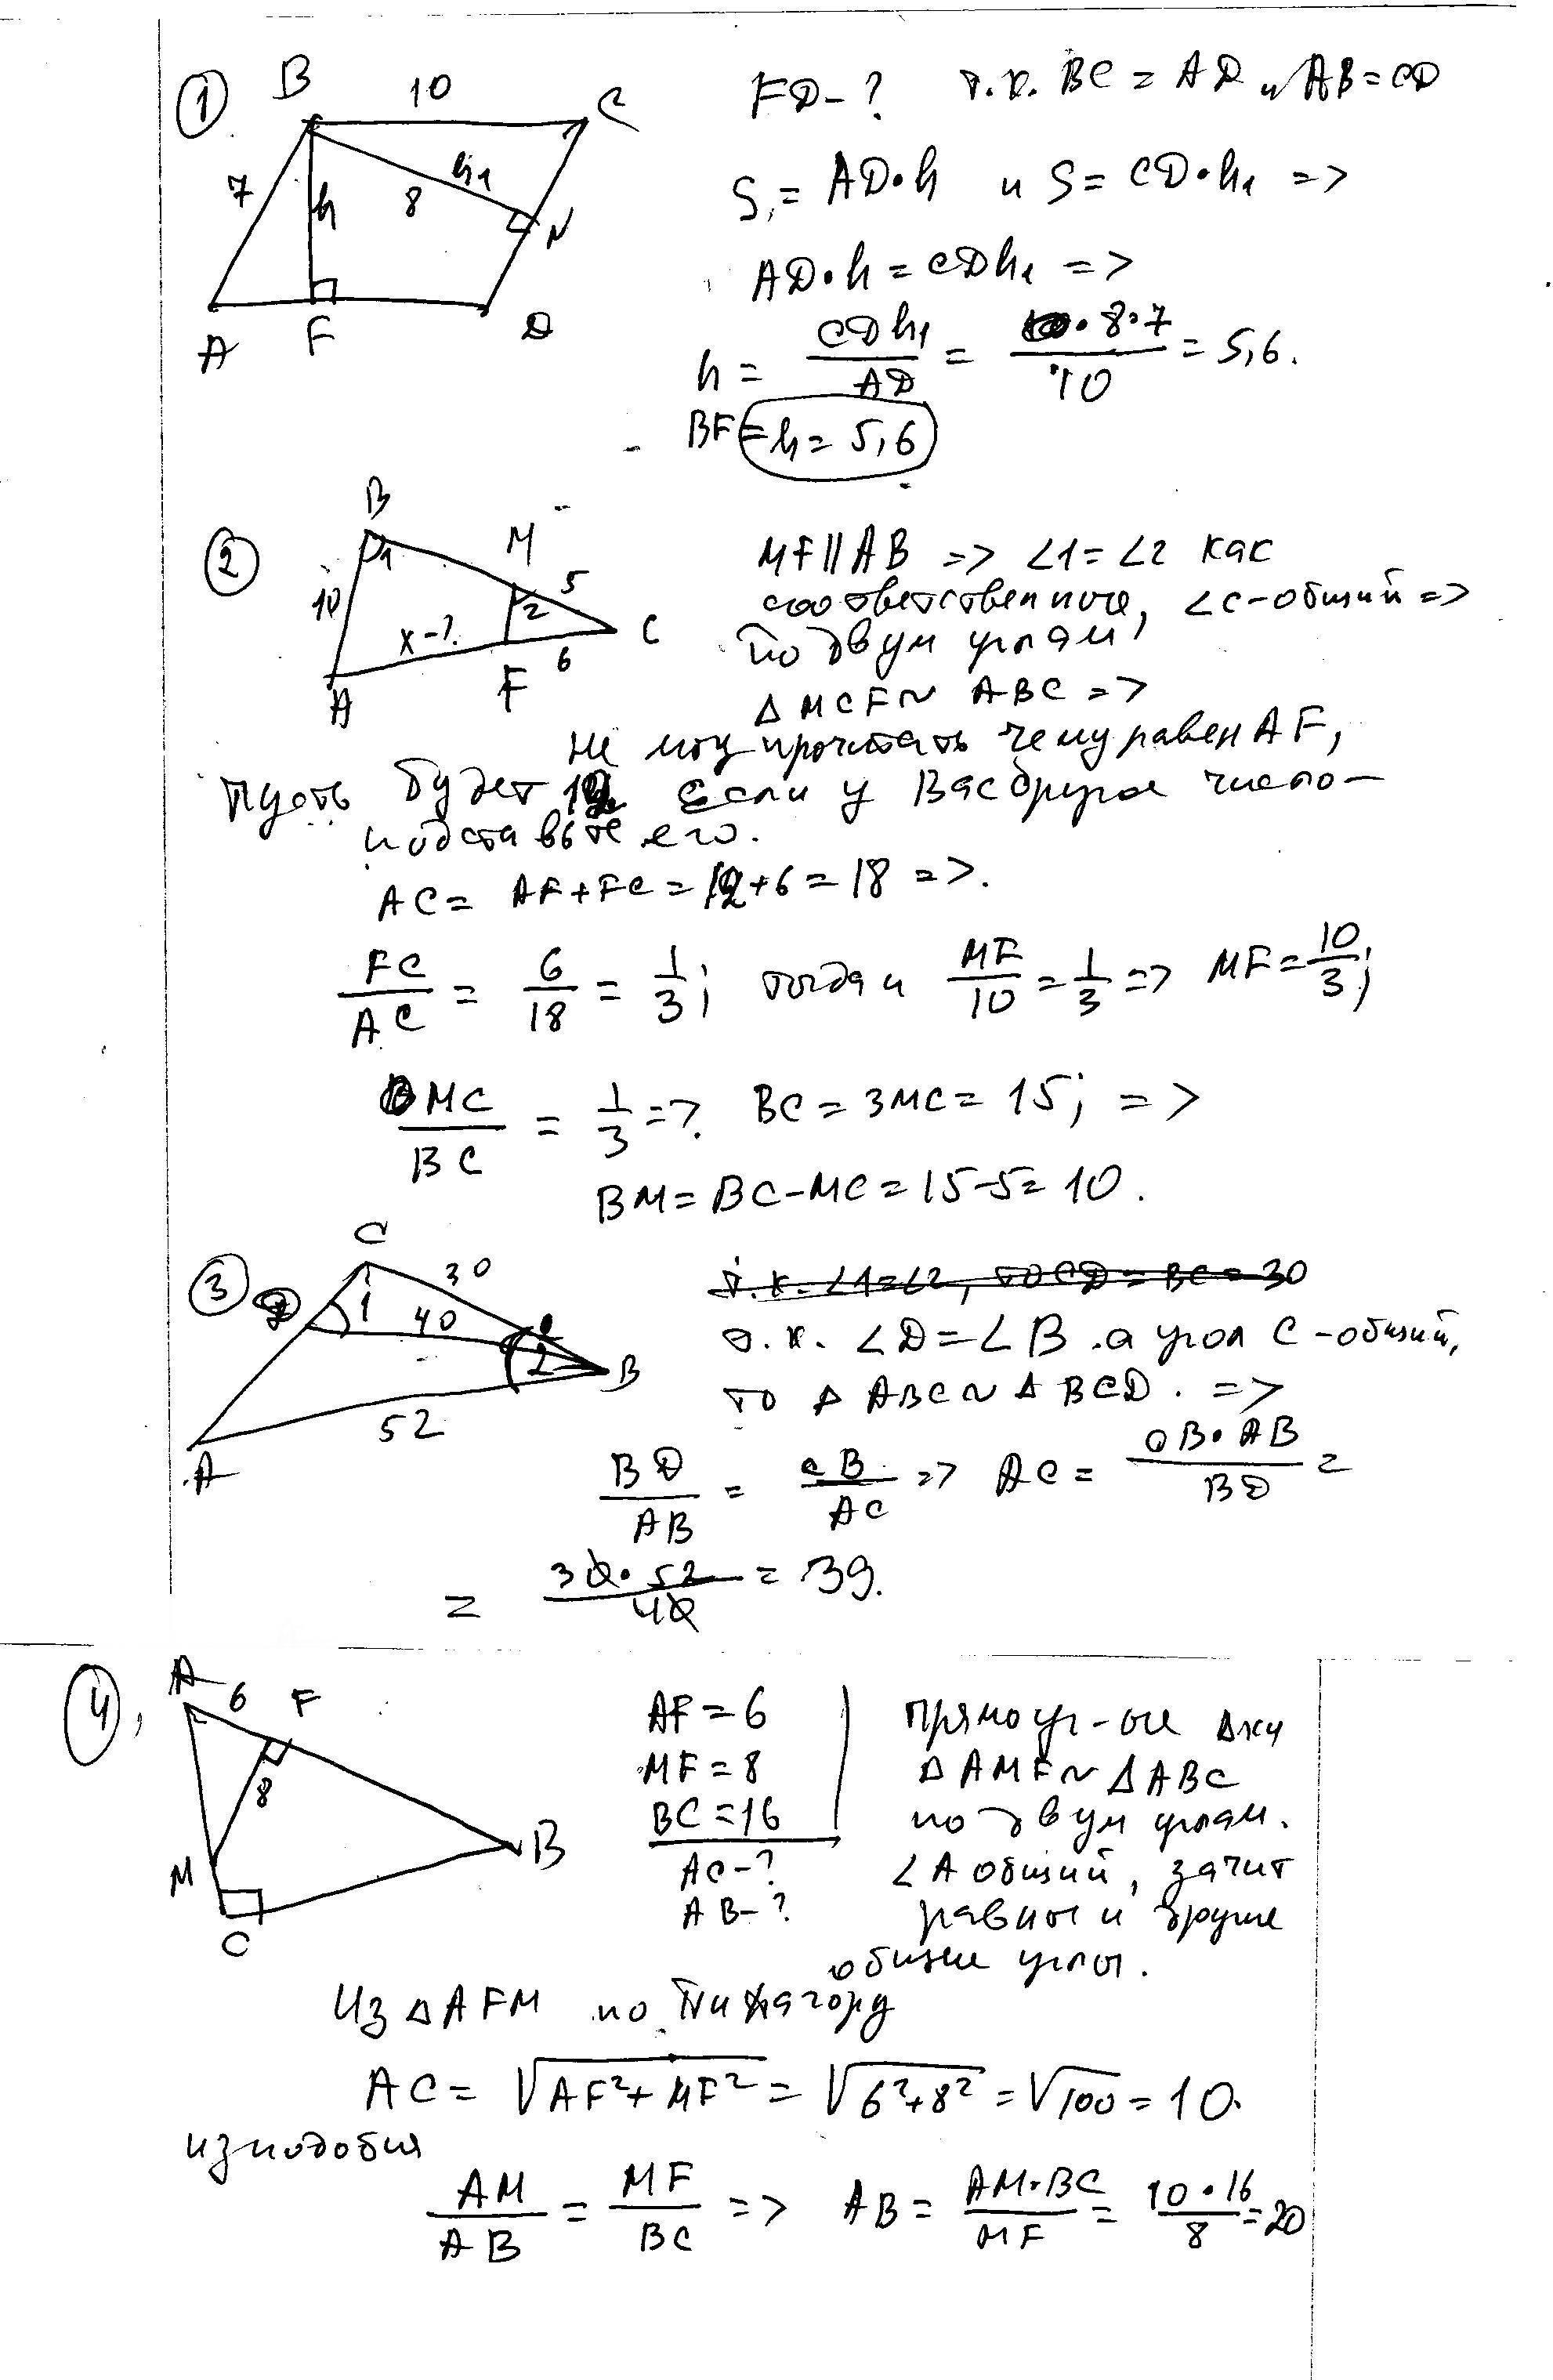 1
B 10 C
7 h 8 h₁ N
A F D
FD-? т.к. BC = AD и AB = CD
S₁ = AD·h и S = CD·h₁ =>
AD·h = CDh₁ =>
h = CDh₁/AD = ·8·7/10 = 5,6.
BF = h = 5,6
2
B M
1 5
10 2 C
x-? 6
A F
MF||AB => ∠1=∠2 как
соответственные, ∠C-общий =>
по двум углам
Δ MCF ~ ABC =>
Не могу прочитать чему равен AF,
пусть будет 12 Если у Вас другое число-
подставьте его.
AC = AF+FC = 12+6 = 18 =>.
FC/AC = 6/18 = 1/3; тогда и MF/10 = 1/3 => MF = 10/3;
MC/BC = 1/3 =>. BC = 3MC = 15; =>
BM = BC-MC = 15-5 = 10.
3
C
30
D 1 40
2 B
52
A
т.к. ∠1=∠2, то CD = BC = 30
т.к. ∠D=∠B .а угол C-общий,
то Δ ABC ~ Δ BCD. =>
BD/AB = CB/AC => AC = CB·AB/BD =
= 30·52/40 = 39.
4,
A 6 F
8
M B
C
AF = 6
MF = 8
BC = 16
AC-?
AB-?
Прямоуг-ые Δки
Δ AMF ~ Δ ABC
по двум углам.
∠A общий, зачит
равны и другие
общие углы.
Из Δ AFM по Пифагору
AC = √AF²+MF² = √6²+8² = √100 = 10.
из подобия
AM/AB = MF/BC => AB = AM·BC/MF = 10·16/8 = 20